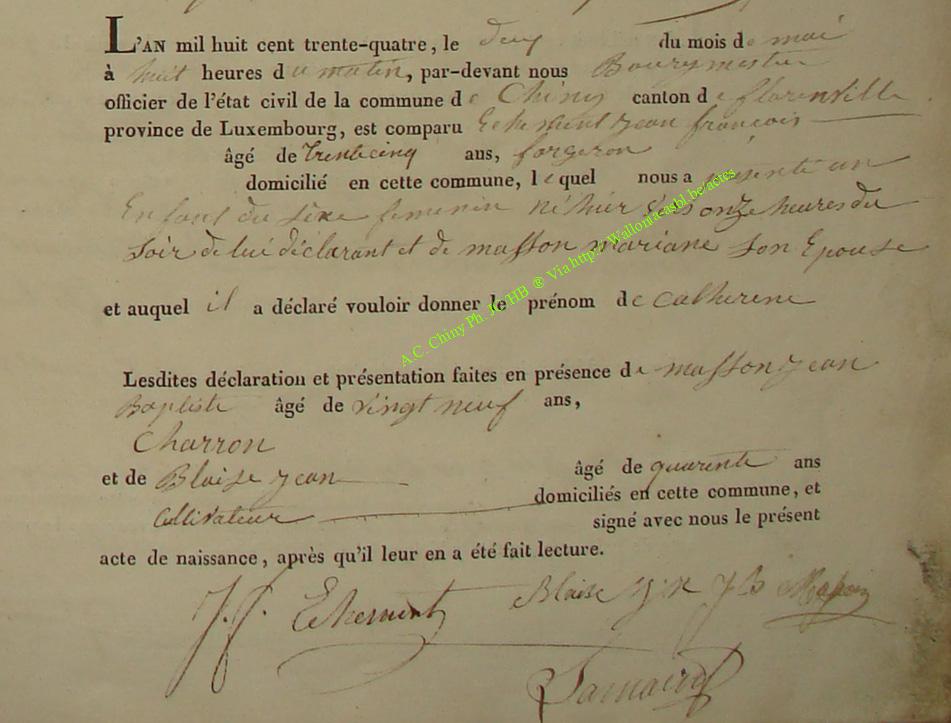 L'AN mil huit cent trente-quatre, le deux du mois de mai
à huit heures du matin, par-devant nous Bourgmestre
officier de l'état civil de la commune de Chiny canton de florenville
province de Luxembourg, est comparu Echement jean françois
âgé de trentecinq ans, forgeron
domicilié en cette commune, lequel nous a présenté un
Enfant du sexe feminin né hier à onze heures du
Soir de lui déclarant et de masson mariane son Epouse
et auquel il a déclaré vouloir donner le prénom de catherine
Lesdites déclaration et présentation faites en présence de masson jean
Baptiste âgé de vingt neuf ans,
Charron
et de Blaise jean âgé de quarente ans
Cultivateur domiciliés en cette commune, et
signé avec nous le présent
acte de naissance, après qu'il leur en a été fait lecture.
J. f. Echement Blaise JB Masson
A.C. Chiny Ph. JL HB ® Via http://Wallonia-asbl.be/actes